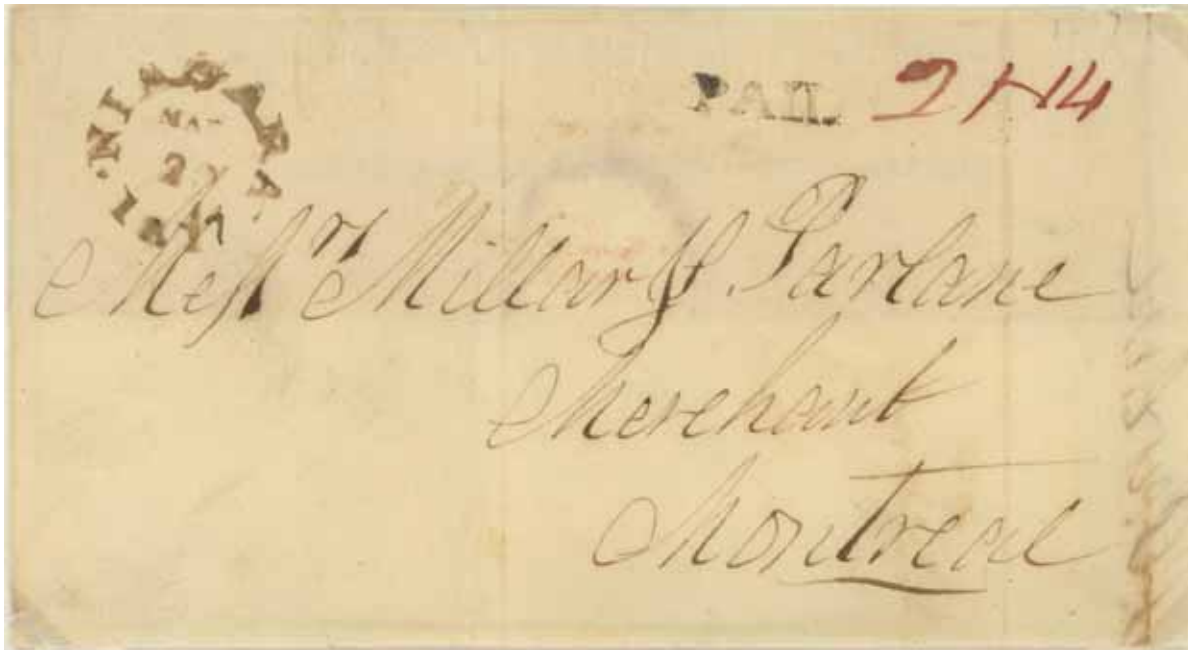 NIAGARA
MAY
PAID 2N4
Messrs Millar & Parlane
Merchant
Montreal